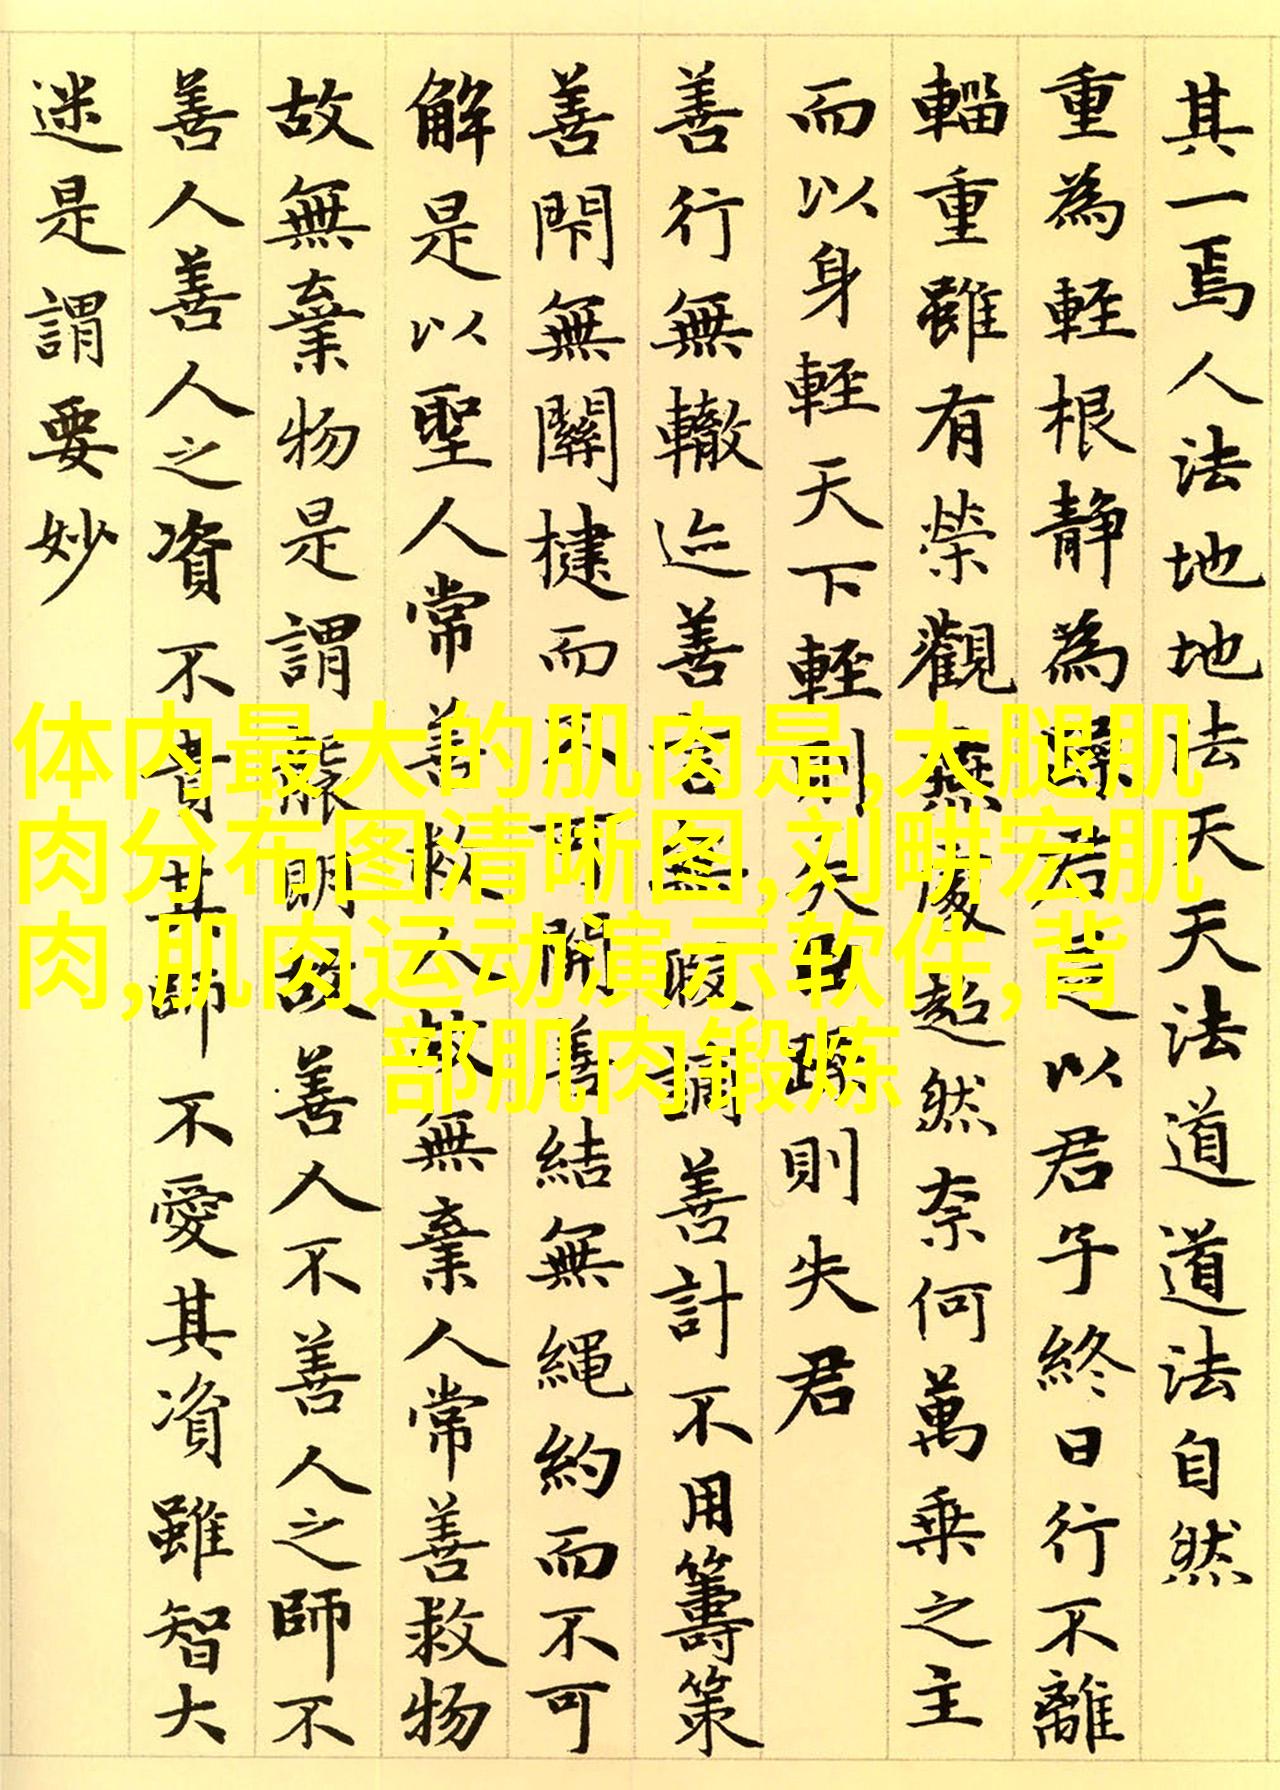 其一焉人法地地法天天法道道法自然
重為輕根靜為躁君是以君子終日行不離
輜重雖有榮觀燕處超然奈何萬乘之主
而以身輕天下輕則失臣躁則失君
善行無轍迹善言無瑕謫善計不用籌策
善閇無關楗而不可開善結無繩約而不可
解是以聖人常善救人故無棄人常善救物
故無棄物是謂襲明故善人不善人之師不
善人善人之資不貴其師不愛其資雖智大
迷是謂要妙
体内最大的肌肉是,大腿肌
肉分布图清晰图,刘畊宏肌
肉,肌肉运动演示软件,背
部肌肉锻炼